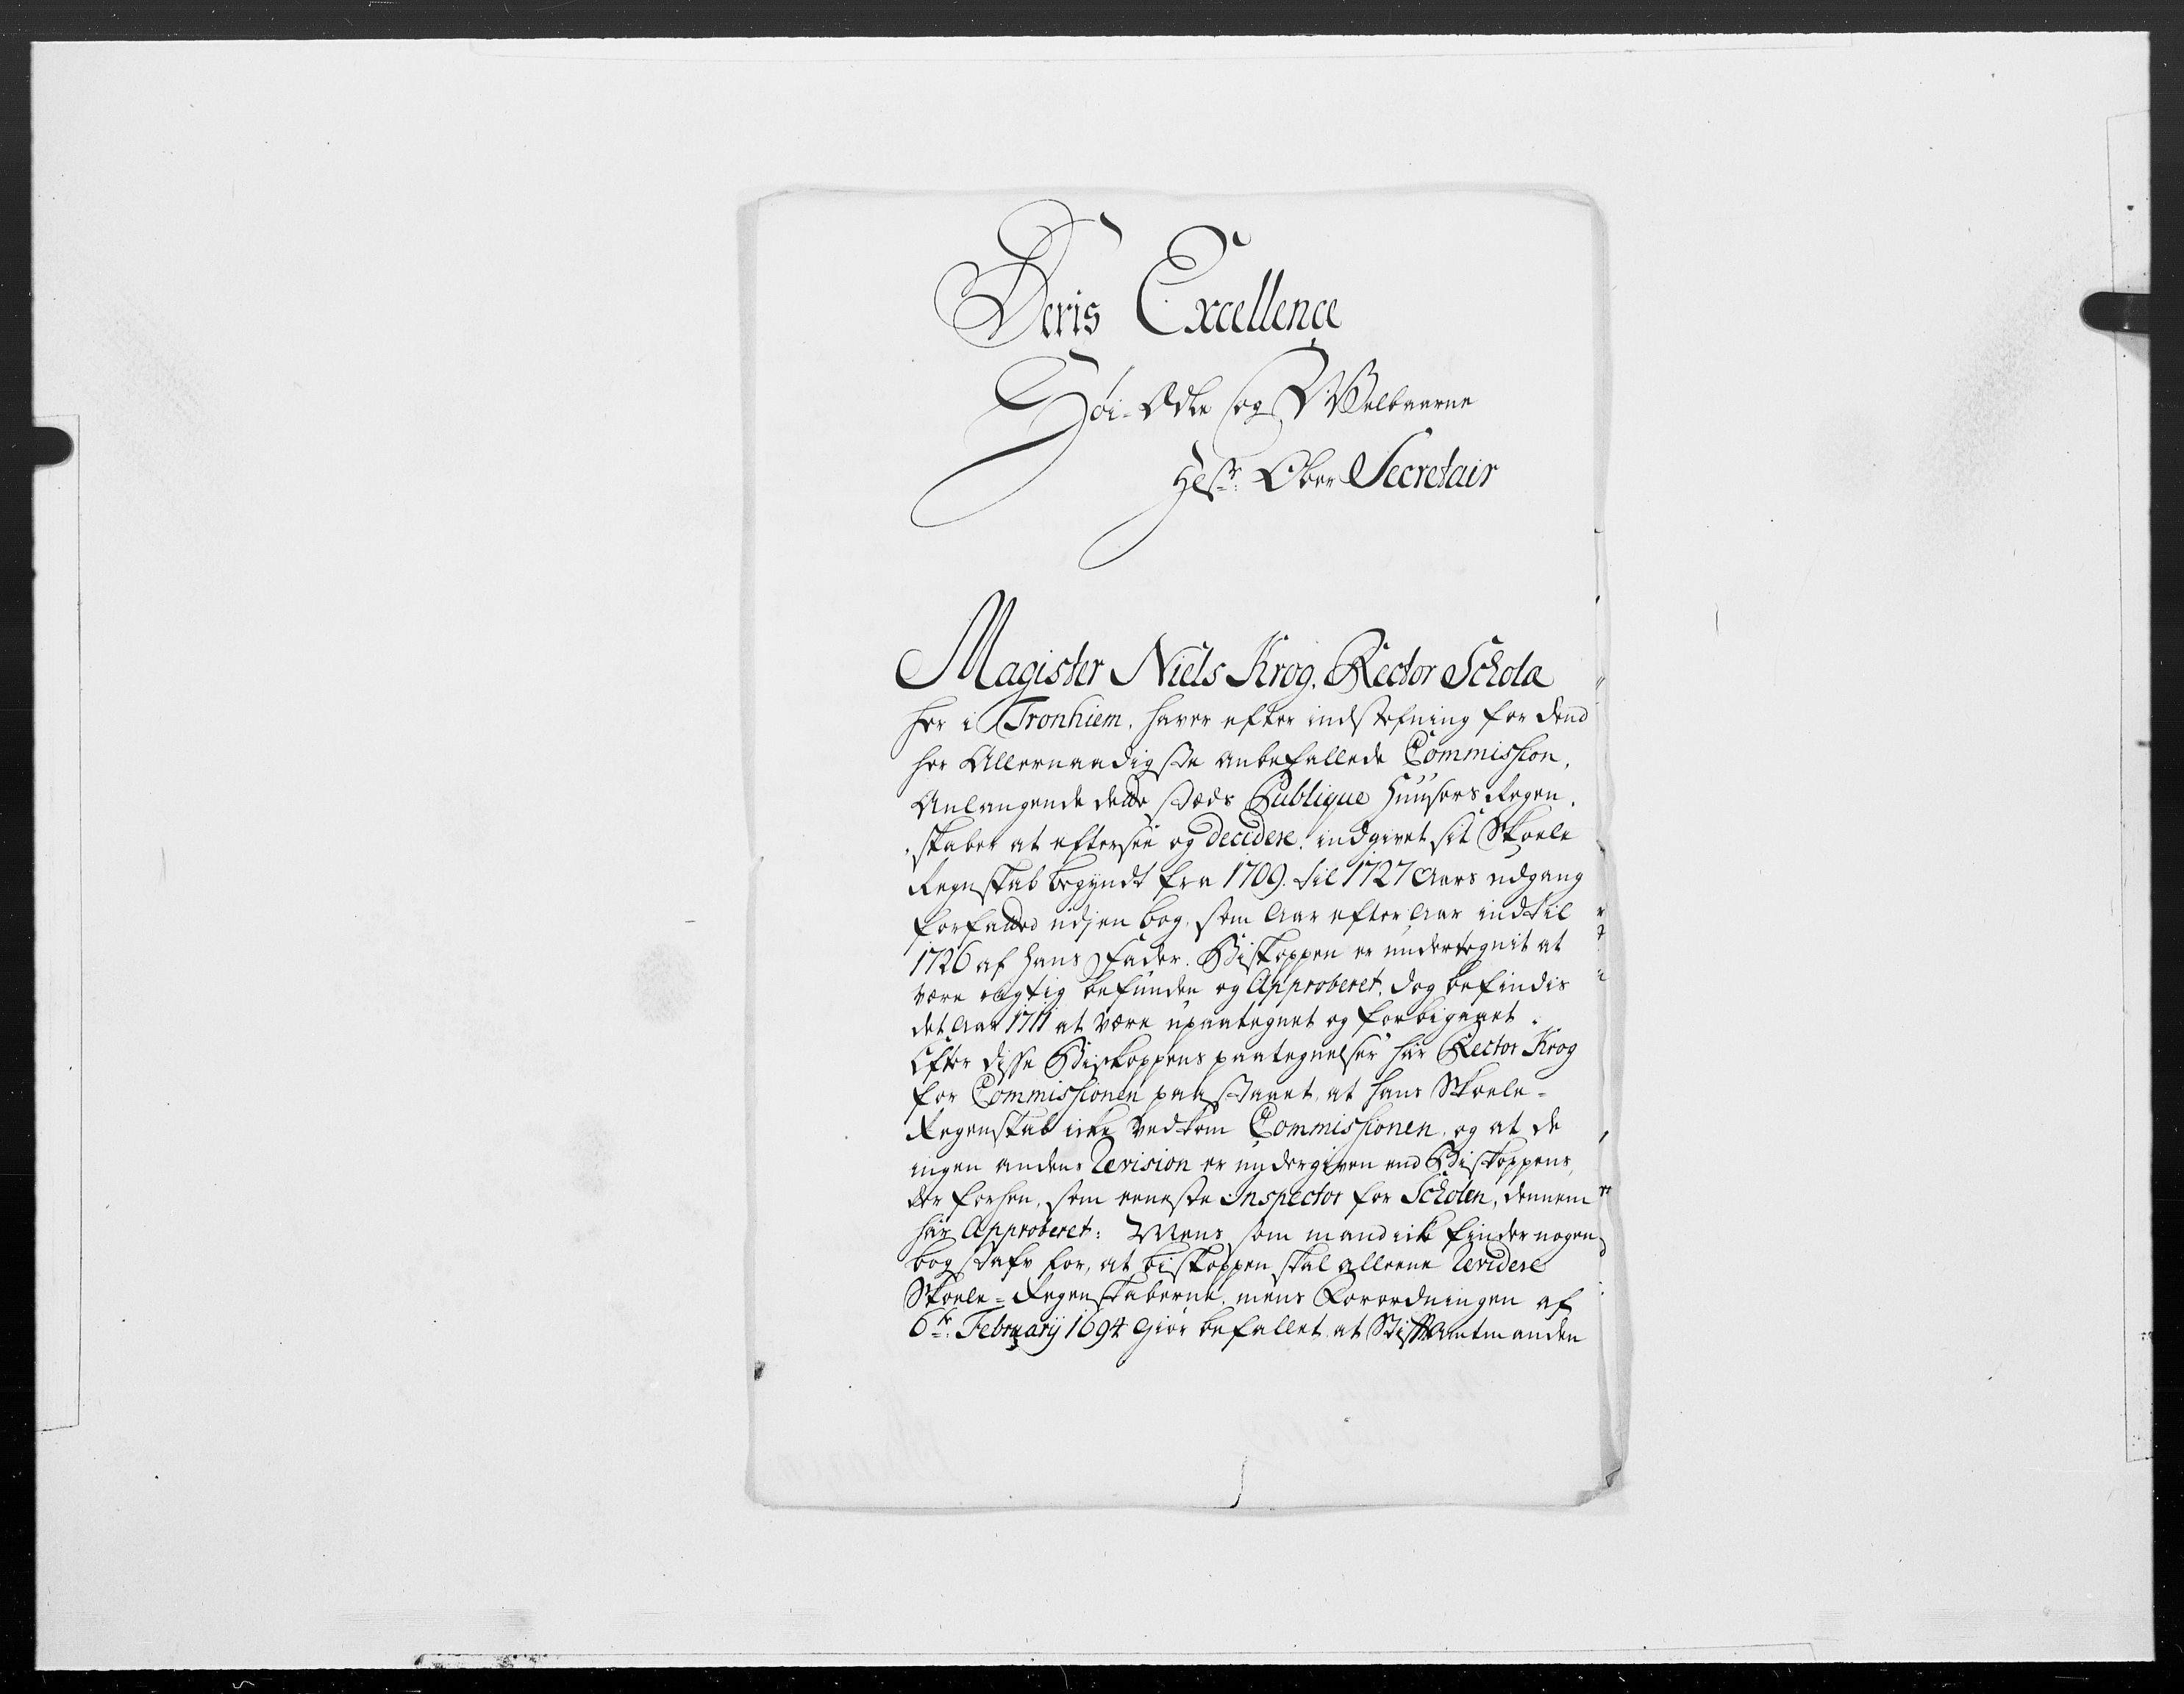 Deris Excellence
Høi-Ædle og Velbaarne
Hr. Ober Secretair
Magister Niels Krog, Rector Scholæ
her i Tronhiem, haver efter indstefning for dend
her Allernaadigste anbefallede Commission,
Anlangende dette stæds Publique Huusers Regen-
skaber at eftersee og decidere, indgivet sit Skoele
Regnskab begyndt fra 1709. til 1727 Aars udgang
forfatted udj en bog, som Aar efter Aar indtil
1726 af hans Fader, Biskoppen er undertegnit at
være rigtig befunden og Approberet, dog befindis
det Aar 1711 at være upaategnet og forbigaaet.
Efter disse Biskoppens paategnelser har Rector Krog
for Commissionen paastaaet, at hans Skoele-
Regenskab icke vedkom Commissionen, og at de
ingen anden Revision er undergiven end Biskoppens,
der forhen, som eeneste Inspector for Scholen, dennem
har Approberet: Mens som mand icke finder nogen
bogstafv for, at biskoppen skal alleene Revidere
Skoele-Regenskaberne, mens Forordningen af
6te Februarij 1694 giør befallet at Stiftamtmanden